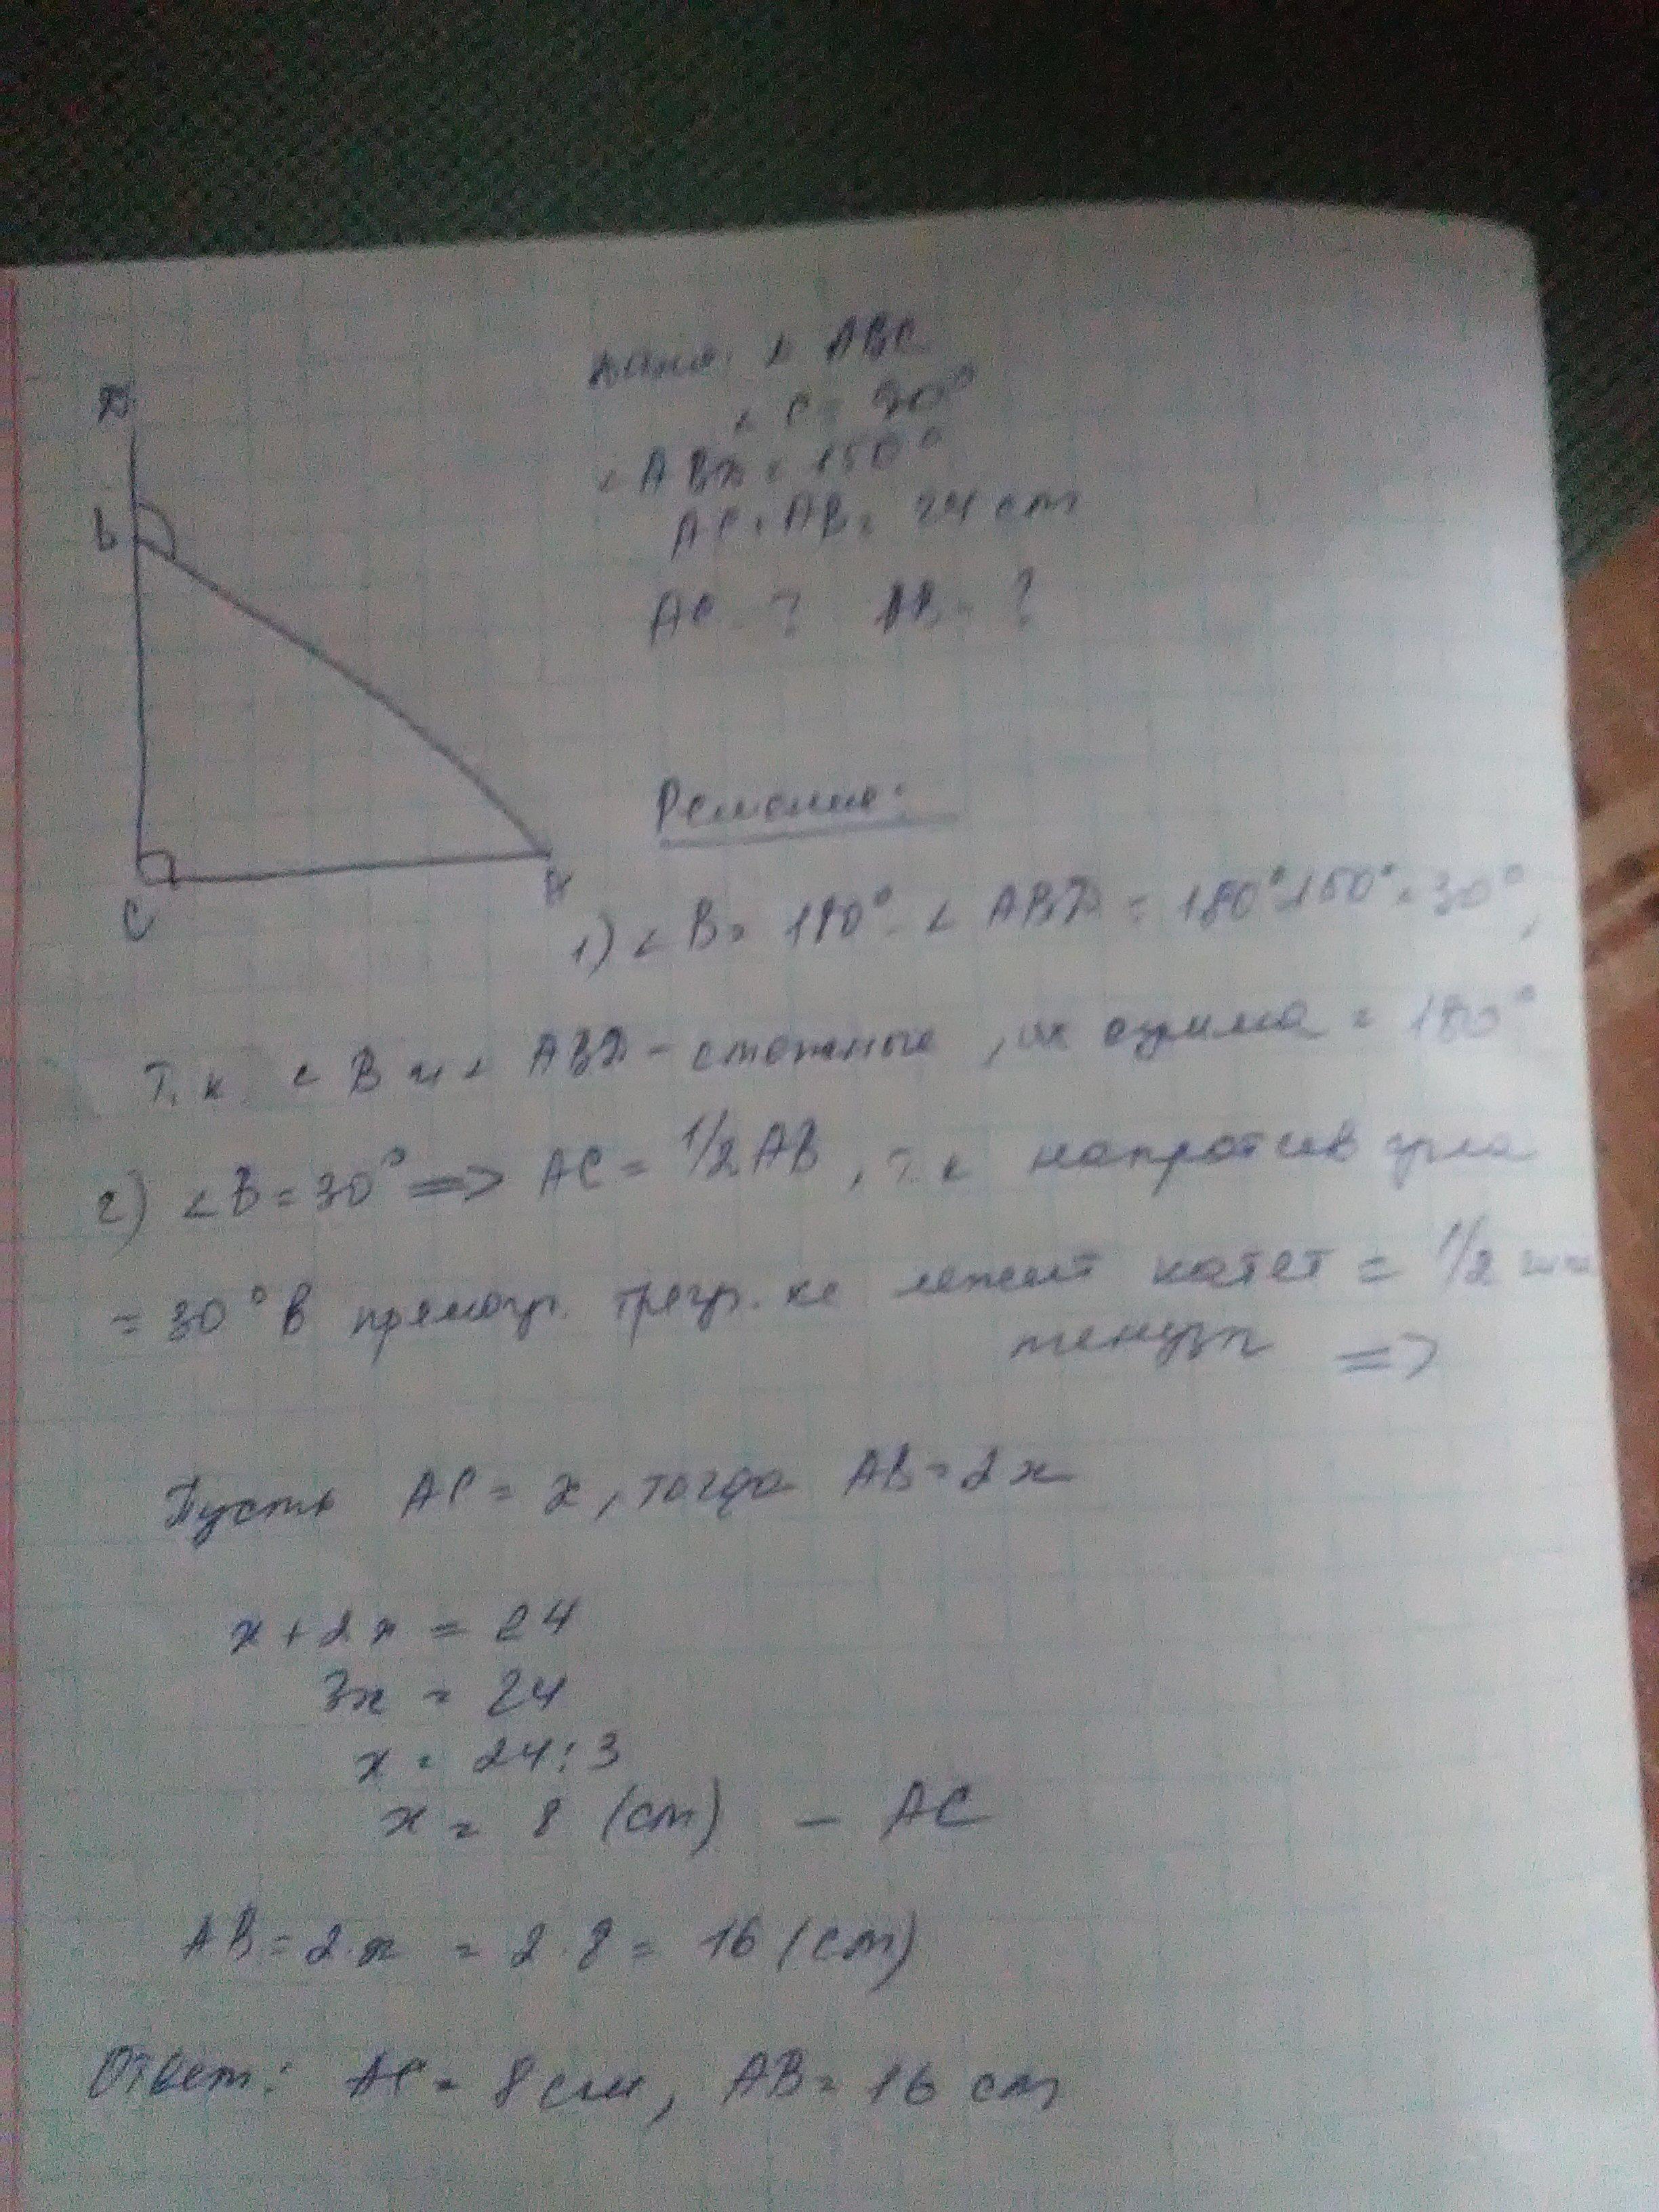 D
B
C
A
Дано: Δ ABC
< C = 90°
< ABD = 150°
AC + AB = 24 cm
AC - ? AB - ?
Решение:
1) < B = 180° - < ABD = 180° - 150° = 30°,
Т. к < B и < ABD - смежные, их сумма = 180°
2) < B = 30° => AC = 1/2 AB, т. к напротив угла
= 30° в прямоуг. треуг. ке лежит катет = 1/2 гипо
тенузы =>
Пусть AC = x, тогда AB = 2x
x + 2x = 24
3x = 24
x = 24 : 3
x = 8 (cm) - AC
AB = 2·x = 2·8 = 16 (cm)
Ответ: AC = 8 см, AB = 16 cm